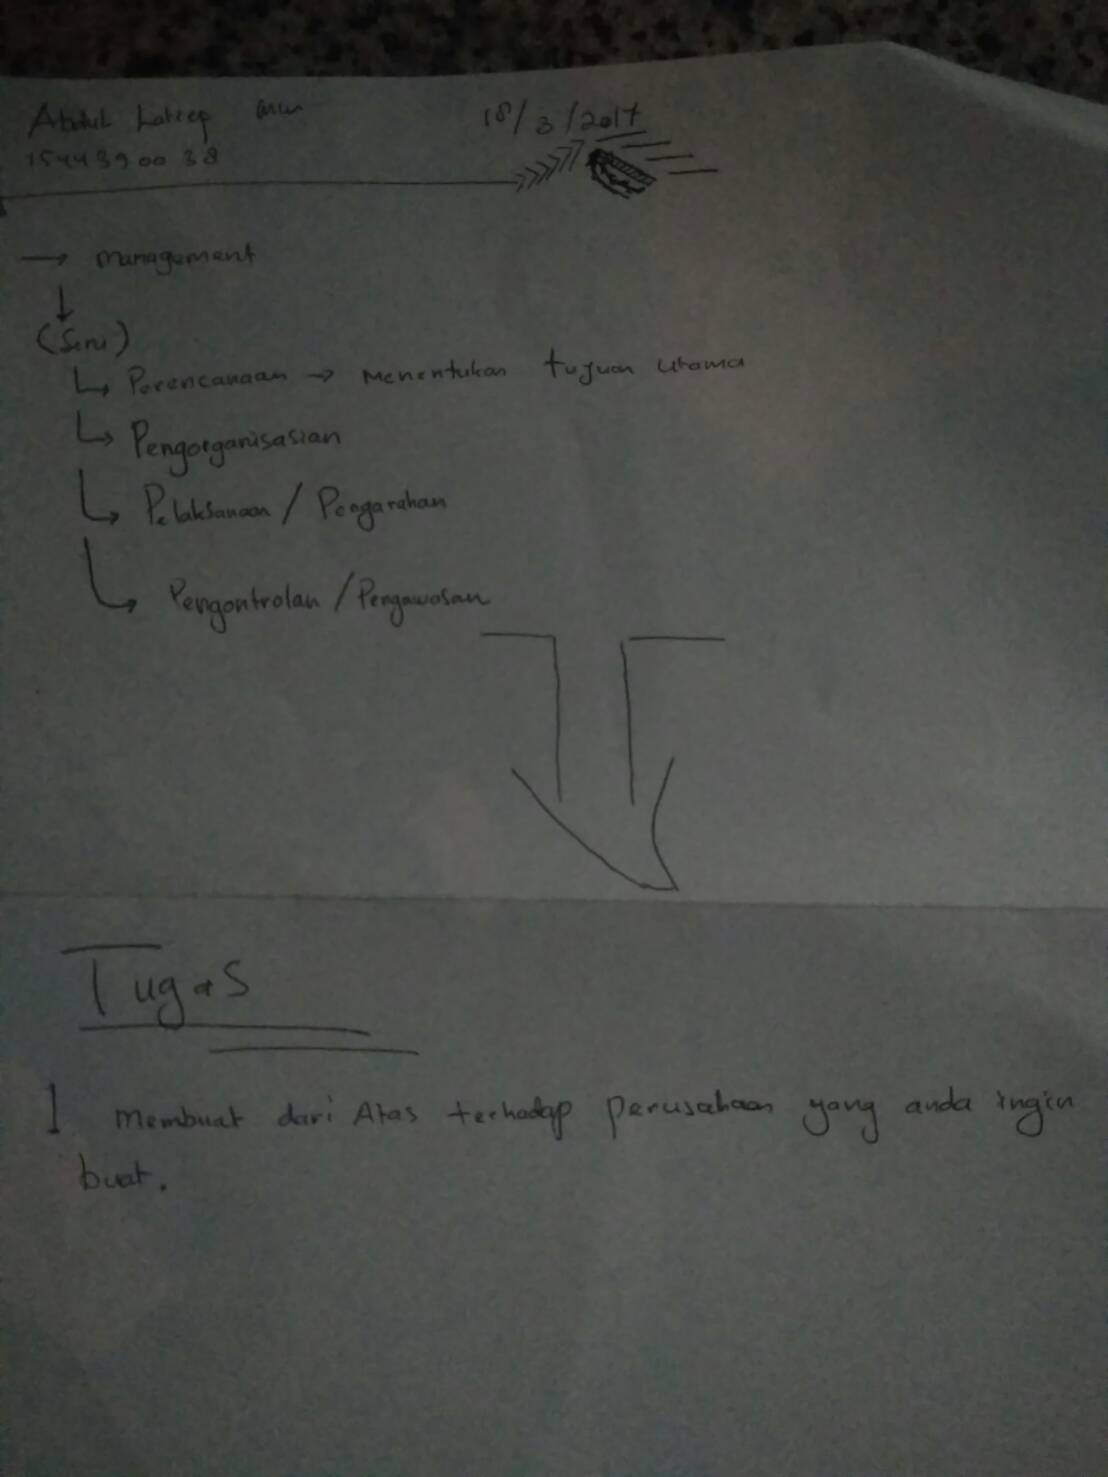 Abdul Lateep 18/3/2017
1544390038
→ management
↓
(Seni)
↳ Perencanaan → Menentukan tujuan utama
↳ Pengorganisasian
↳ Pelaksanaan / Pengarahan
↳ Pengontrolan / Pengawasan
Tugas
1 Membuat dari Atas terhadap perusahaan yang anda ingin
buat.